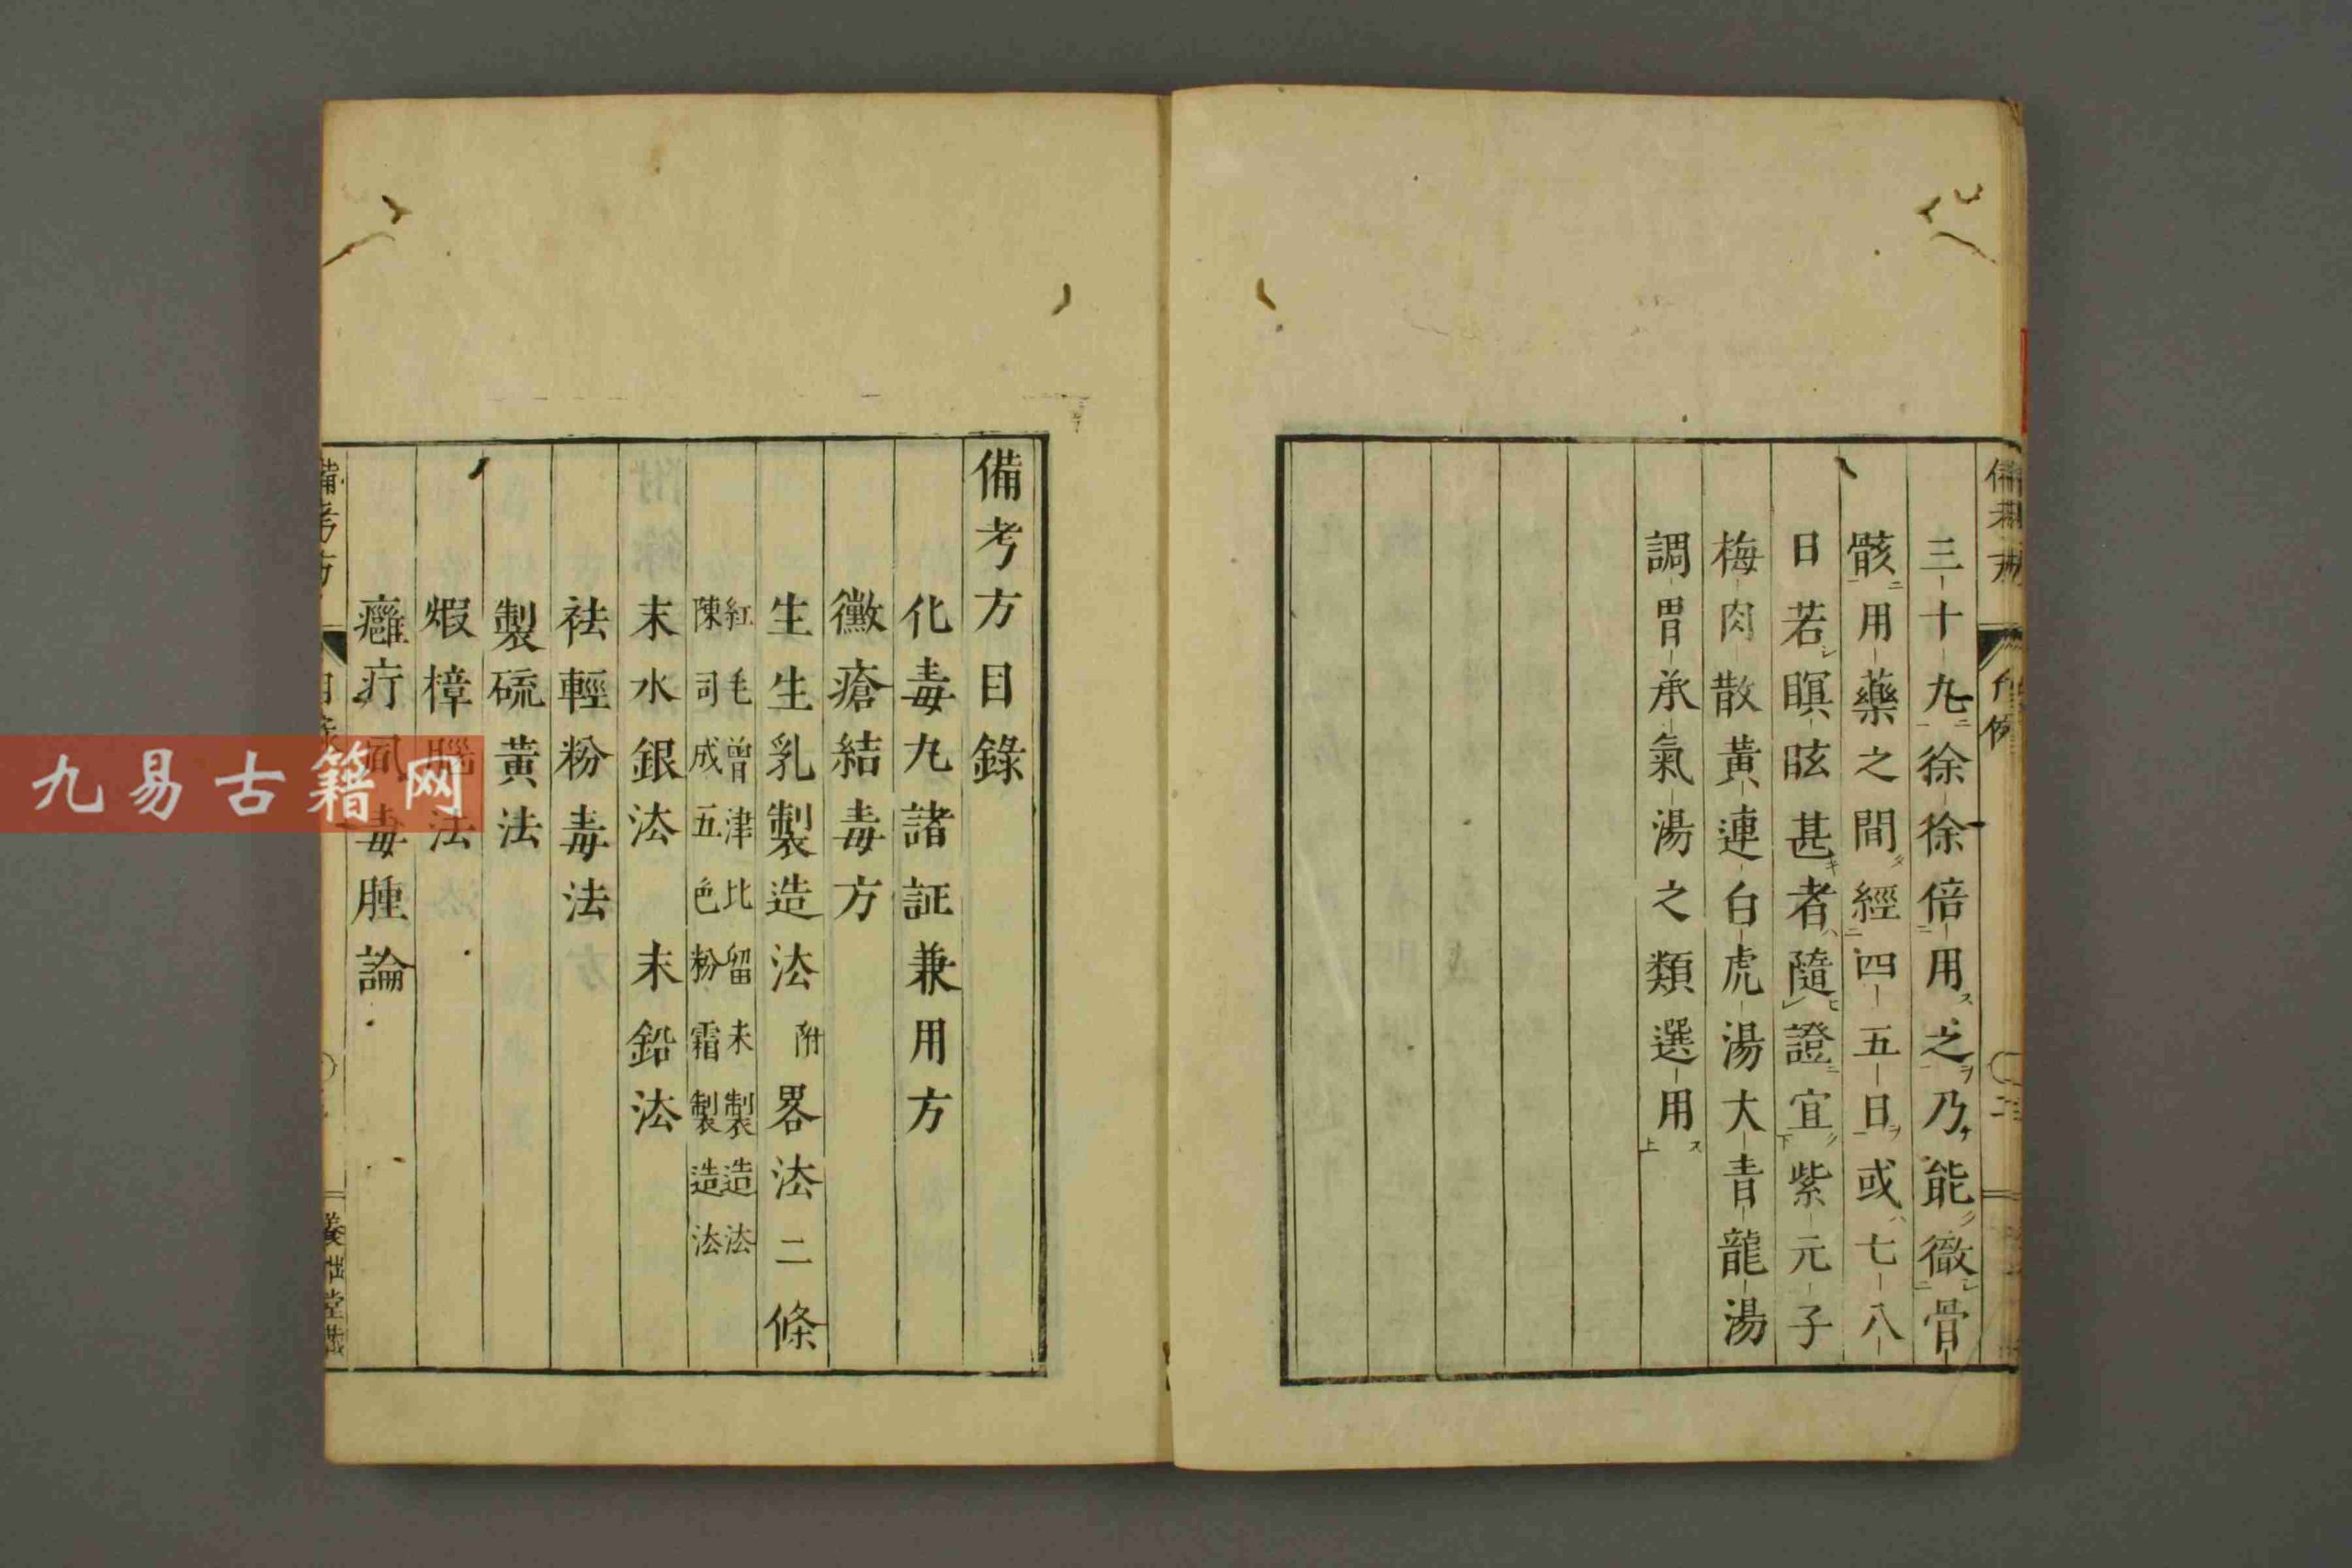 三十九徐徐倍用之乃能徹骨
骸用藥之間經四五日或七八
日若瞑眩甚者隨證宜紫元子
梅肉散黃連白虎湯大青龍湯
調胃承氣湯之類選用
備考方目錄
化毒丸諸証兼用方
黴瘡結毒方
生生乳製造法 附畧法二條
紅毛曾津比留末製造法
陳司成五色粉霜製造法
末水銀法 末鉛法
袪輕粉毒法
製硫黃法
煆樟腦法
癰疔風毒腫論
九易古籍网